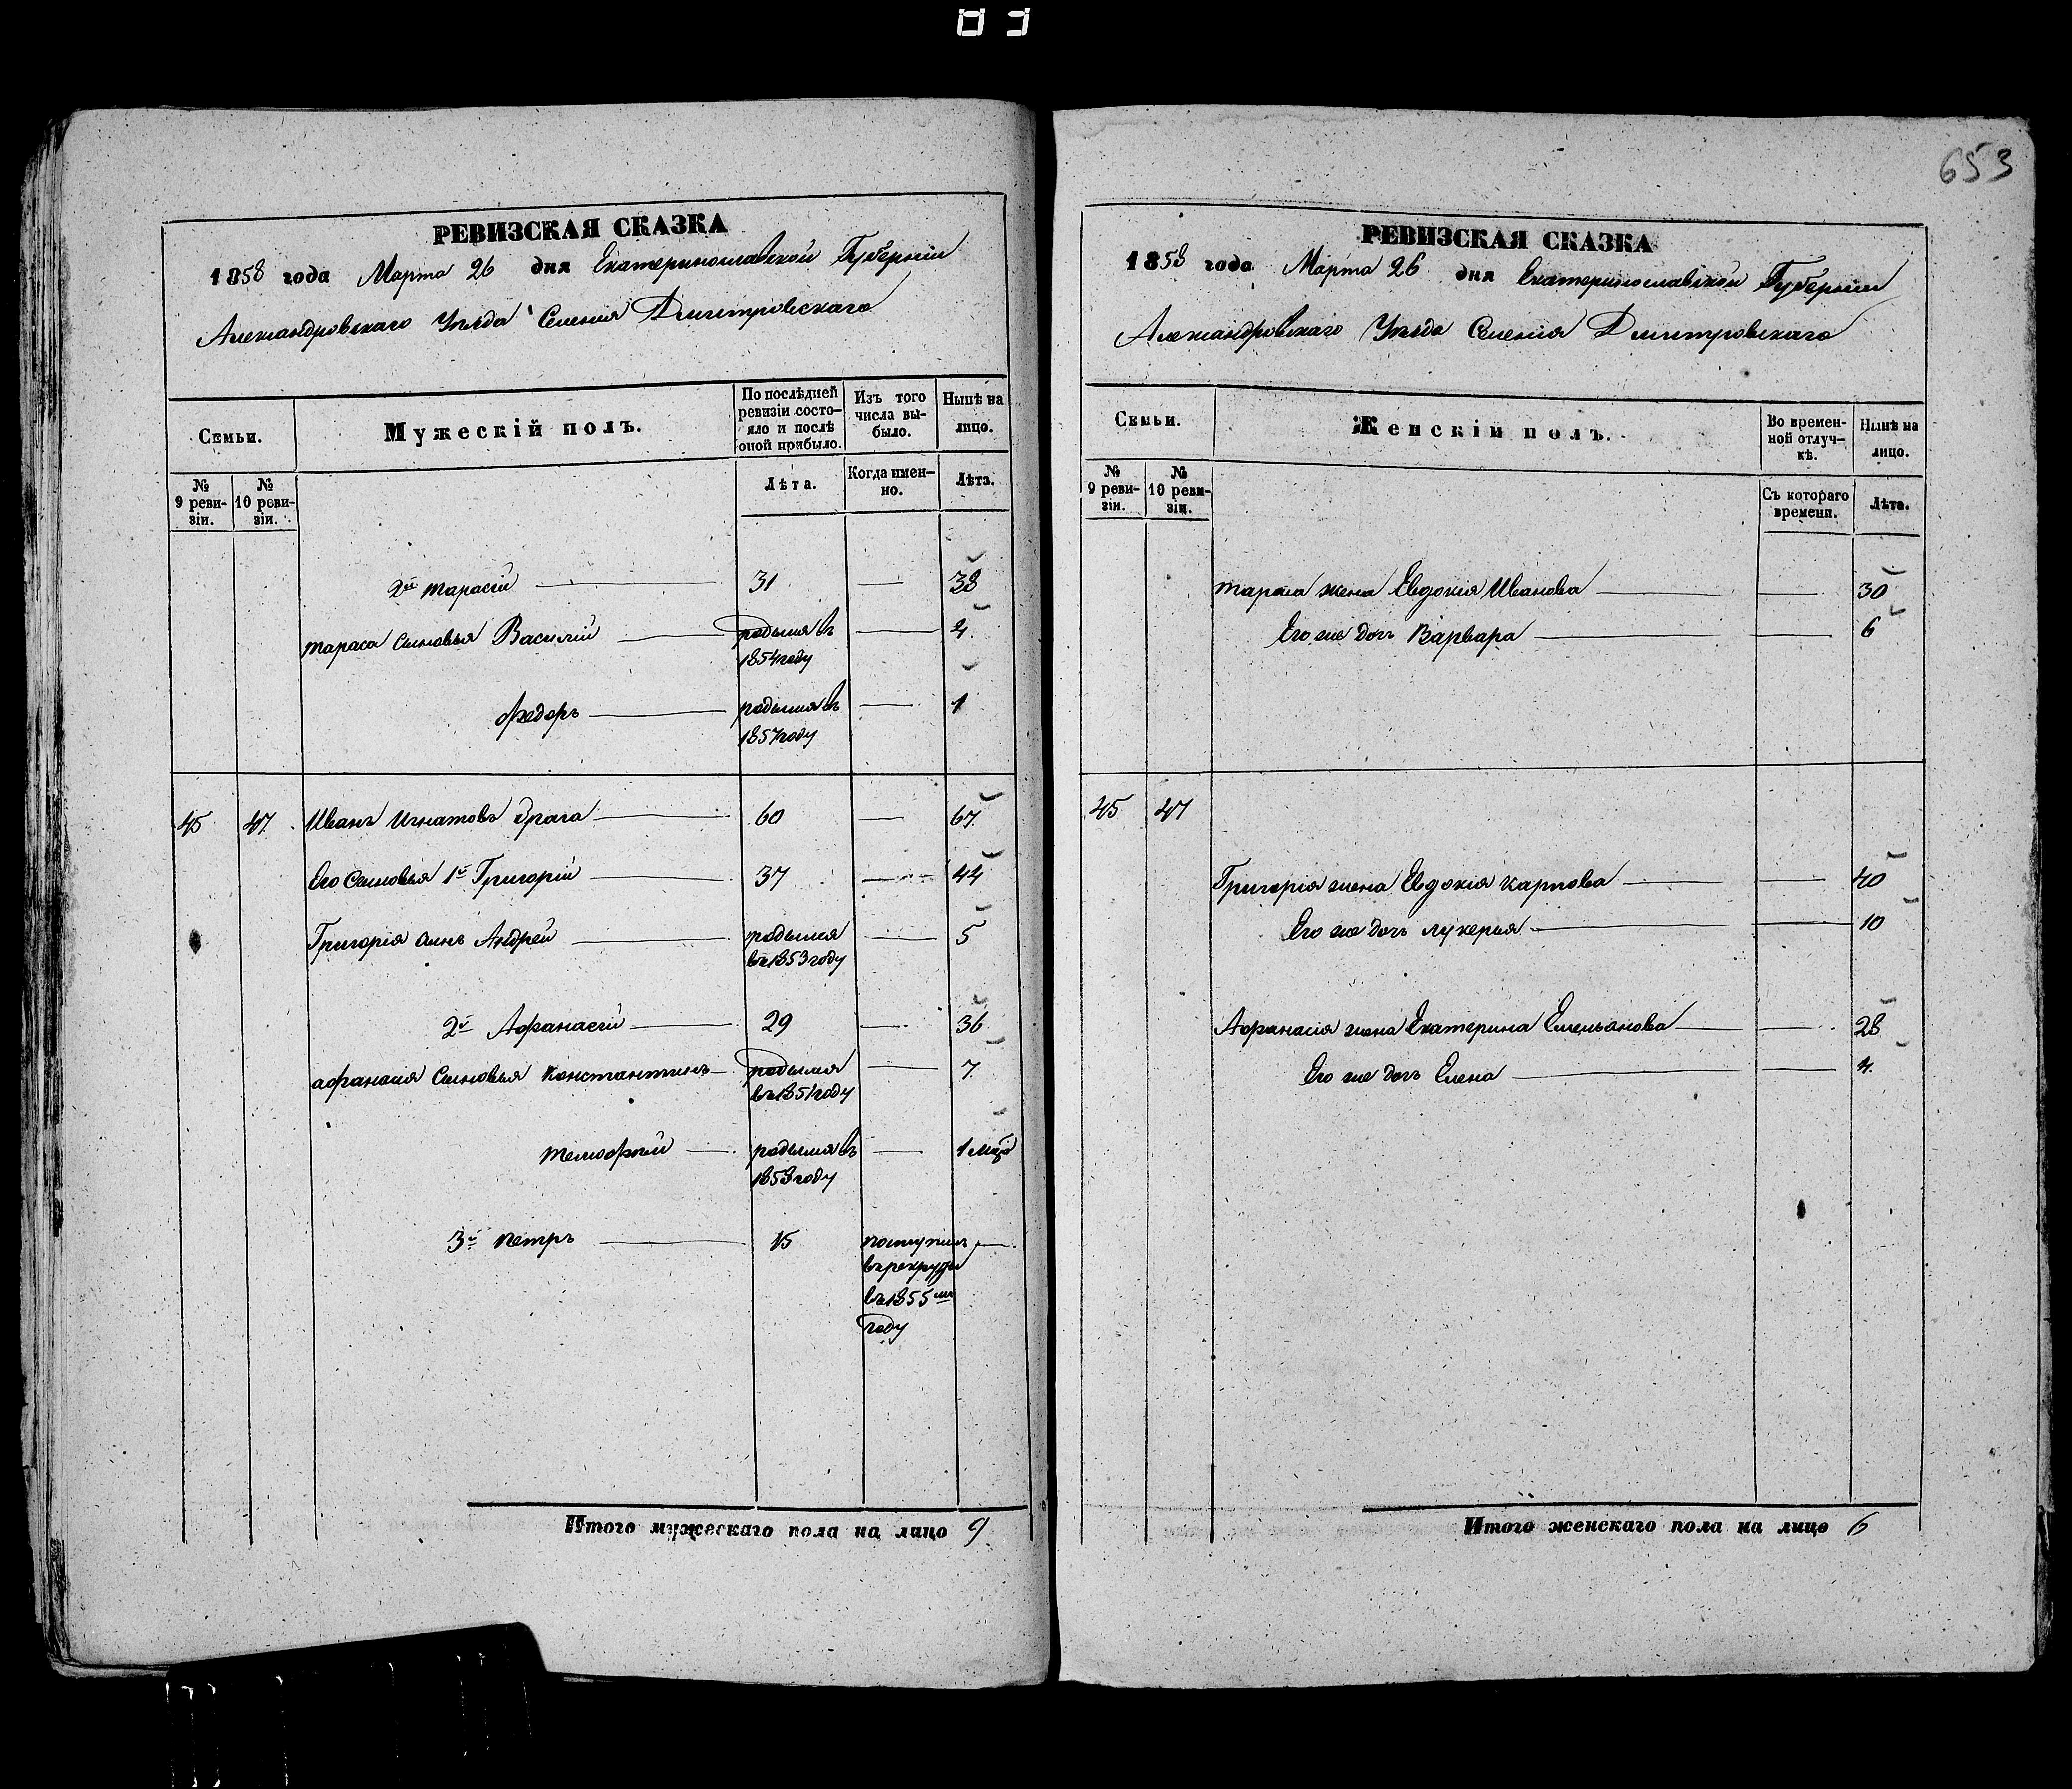 653
РЕВИЗСКАЯ СКАЗКА
1858 года Марта 26 дня Екатеринославской Губерніи
Александровскаго Уѣзда Селенія Дмитровскаго
Семьи.
Мужескій полъ.
По послѣдней ревизіи состо-
яло и послѣ оной прибыло.
Изъ того числа вы-
было.
Нынѣ на лицо.
№ 9 реви-
зіи.
№ 10 реви-
зіи.
Лѣта.
Когда имен-
но.
Лѣта.
2й Тарасій 31 38
Тараса сыновья Василій родился въ 4
1854 году
Федоръ родился въ 1
1857 году
45 47 Иванъ Игнатовъ Драга 60 67
Его сыновья 1й Григорій 37 44
Григорія сынъ Андрей родился 5
въ 1853 году
2й Афанасій 29 36
Афанасія Сыновья Константинъ родился 7
въ 1851 году
родился въ 1
1858 году
3й Петръ 15 поступилъ
въ рекруты
въ 1855мъ
году
Итого мужескаго пола на лицо 9
РЕВИЗСКАЯ СКАЗКА
1858 года Марта 26 дня Екатеринославской Губерніи
Александровскаго Уѣзда Селенія Дмитровскаго
Семьи.
Женскій полъ.
Во времен-
ной отлуч-
кѣ.
Нынѣ на лицо.
№ 9 реви-
зіи.
№ 10 реви-
зіи.
Съ котораго времени.
Лѣта.
Тараса жена Евдокія Иванова 30
Его же дочь Варвара 6
45 47
Григорія жена Евдокія Карпова 40
Его же дочь Лукерья 10
Афанасія жена Екатерина Емельянова 28
Его же дочь Елена 4
Итого женскаго пола на лицо 6